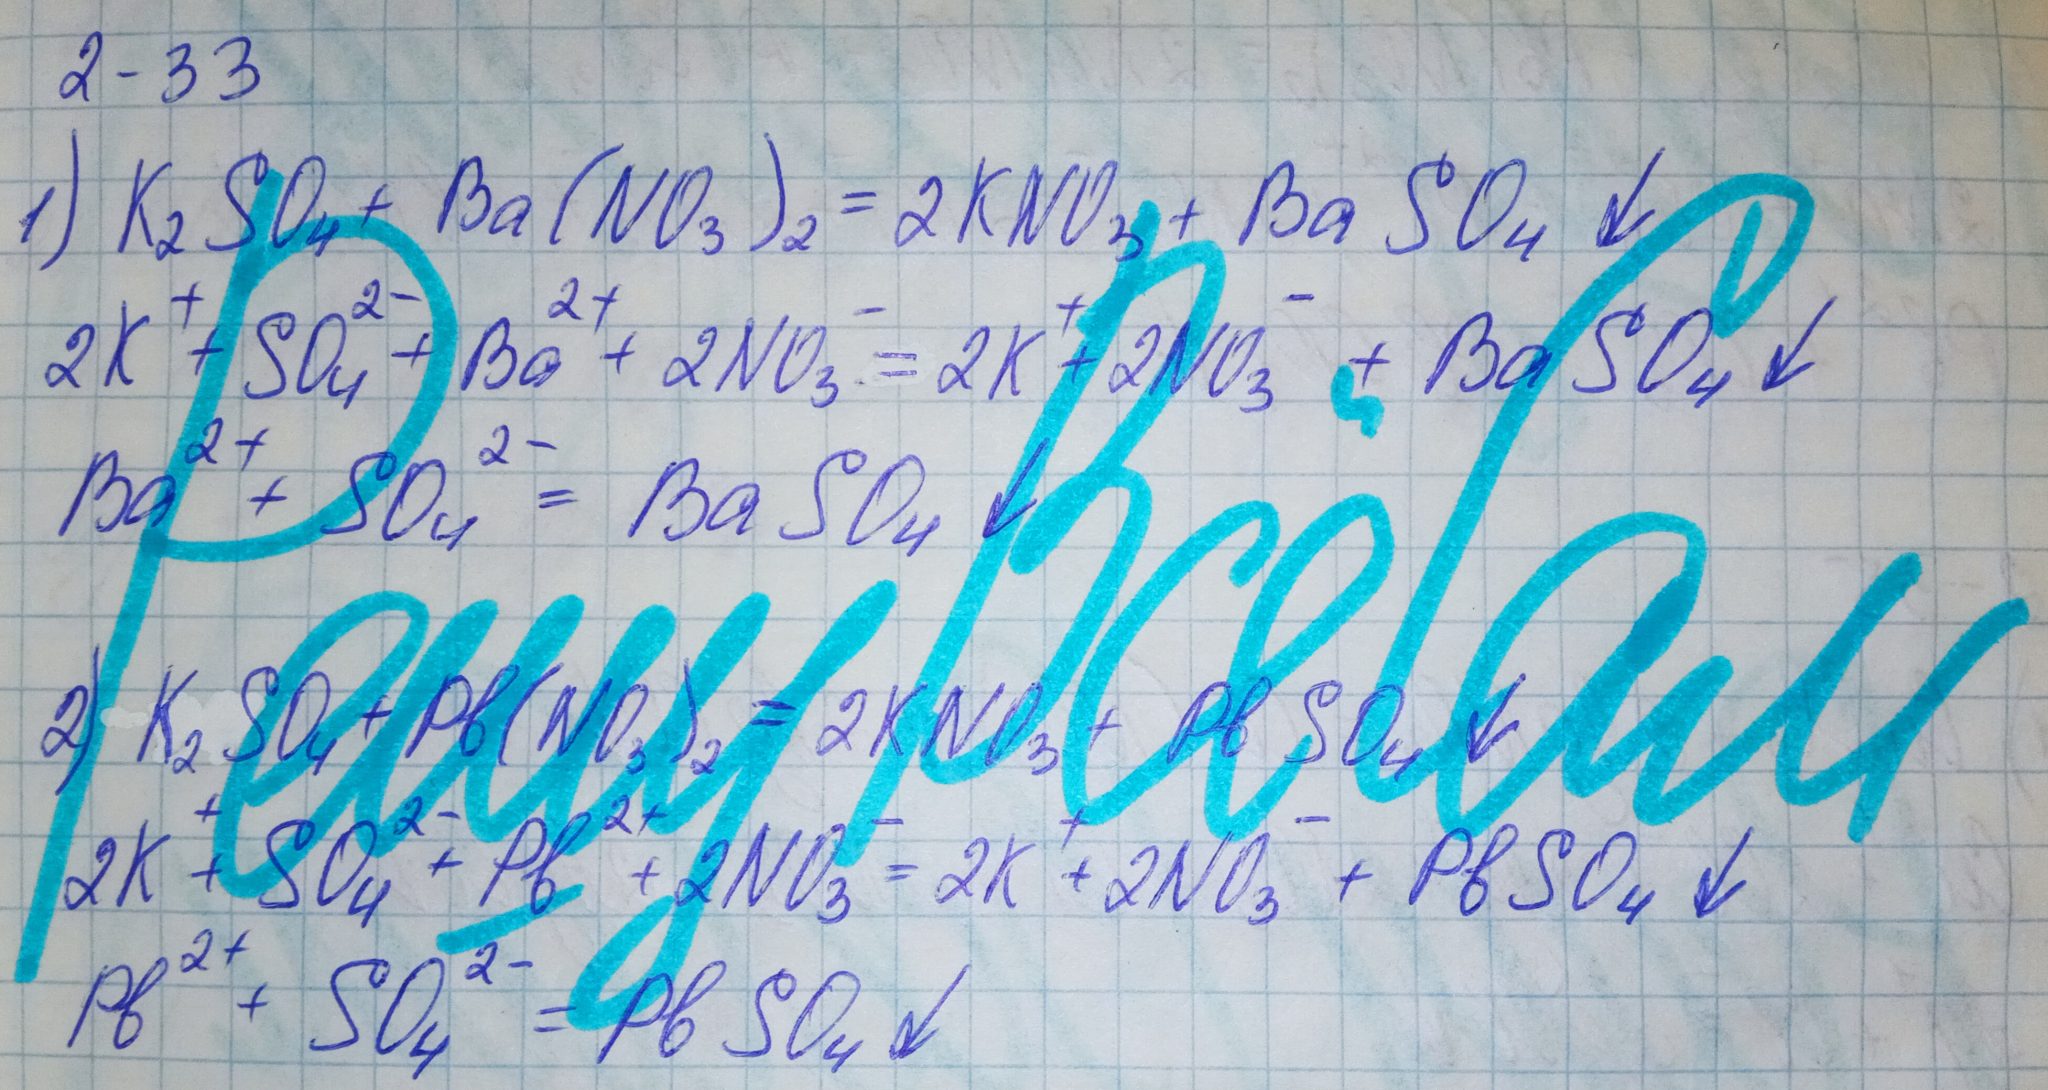 2-33
1) K₂SO₄ + Ba(NO₃)₂ = 2KNO₃ + BaSO₄ ↓
2K⁺ + SO₄²⁻ + Ba²⁺ + 2NO₃⁻ = 2K⁺ + 2NO₃⁻ + BaSO₄ ↓
Ba²⁺ + SO₄²⁻ = BaSO₄ ↓
2) K₂SO₄ + Pb(NO₃)₂ = 2KNO₃ + PbSO₄ ↓
2K⁺ + SO₄²⁻ + Pb²⁺ + 2NO₃⁻ = 2K⁺ + 2NO₃⁻ + PbSO₄ ↓
Pb²⁺ + SO₄²⁻ = PbSO₄ ↓